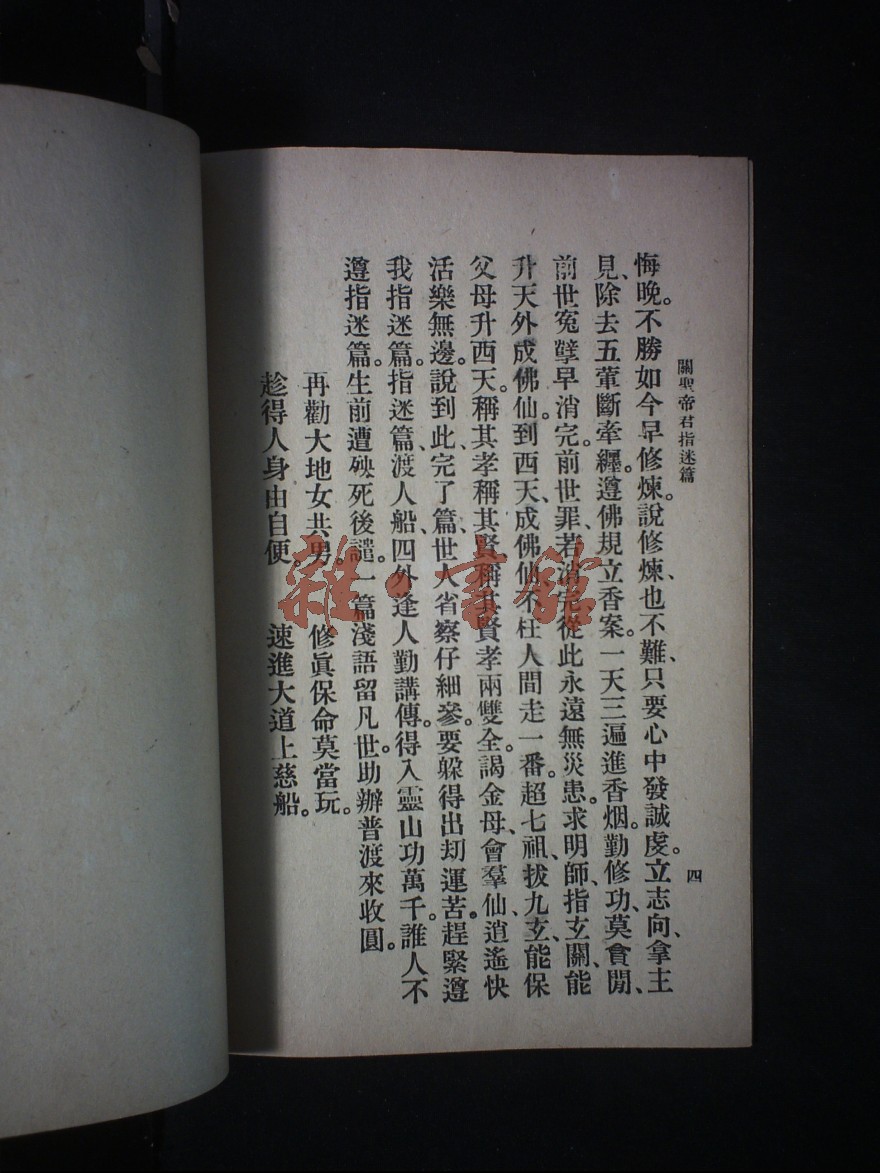 關聖帝君指迷篇
四
悔晚。不勝如今早修煉。說修煉、也不難、只要心中發誠虔。立志向、拿主
見、除去五葷斷牽纏。遵佛規立香案。一天三遍進香烟。勤修功、莫貪閒、
前世寃孽早消完。前世罪若消完從此永遠無災患。求明師、指玄關、能
升天外成佛仙。到西天、成佛仙、不枉人間走一番。超七祖、拔九玄、能保
父母升西天。稱其孝稱其賢稱其賢孝兩雙全。謁金母、會羣仙、逍遙快
活樂無邊。說到此、完了篇、世人省察仔細參。要躲得出刧運苦。趕緊遵
我指迷篇。指迷篇、渡人船、四外逢人勤講傳。得入靈山功萬千。誰人不
遵指迷篇。生前遭殃死後譴。一篇淺語留凡世。助辦普渡來收圓。
再勸大地女共男。 修眞保命莫當玩。
趁得人身由自便。 速進大道上慈船。
雜·書館